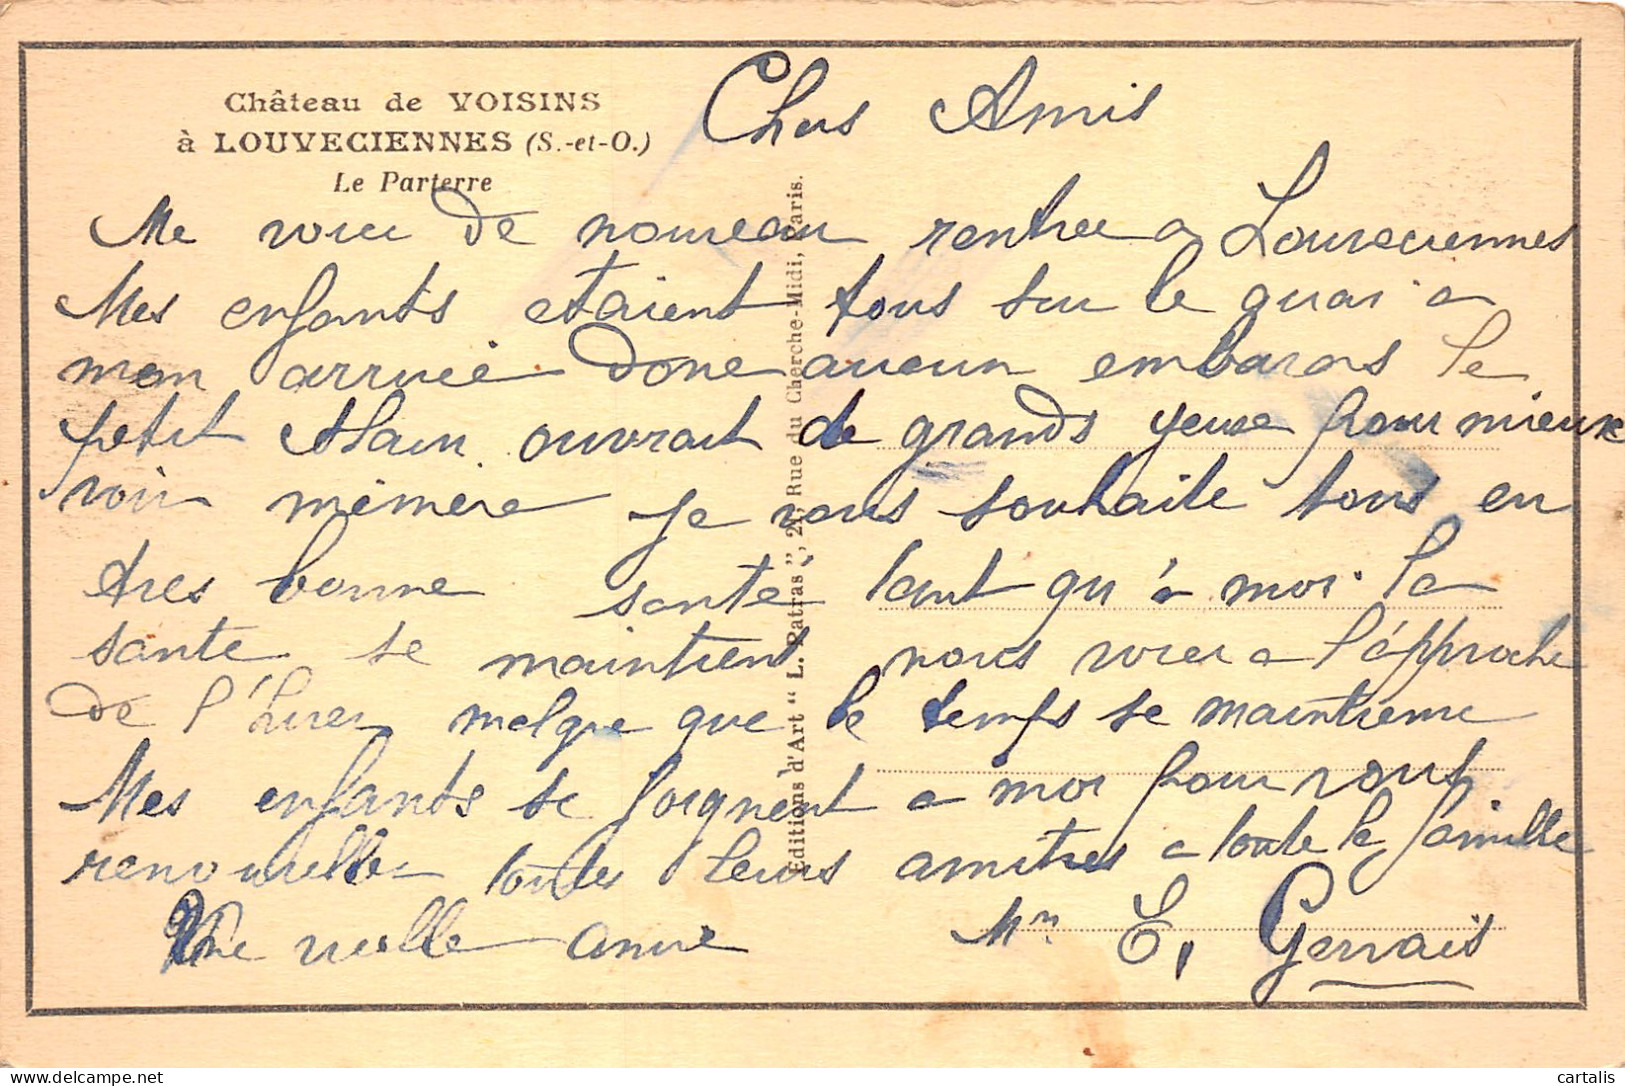 Château de VOISINS
à LOUVECIENNES (S.-et-O.)
Le Parterre
Chers Amis
Me voici de nouveau rentree a Louveciennes
Mes enfants etaient tous sur le quai a
mon arrivée donc aucun embaras le
petit Alain ouvrait de grands yeux pour mieux
voir mémère je vous souhaite tous en
tres bonne santé tant qu'à moi la
sante se maintient nous voici a l'approche
de l'hiver malgre que le temps se maintienne
Mes enfants se joignent a moi pour vous
renouveller toutes leurs amitiés a toute la famille
Une vielle amie Mm E, Gervais
Editions d'Art "L. Patras", Rue du Cherche-Midi, Paris.
cartalis